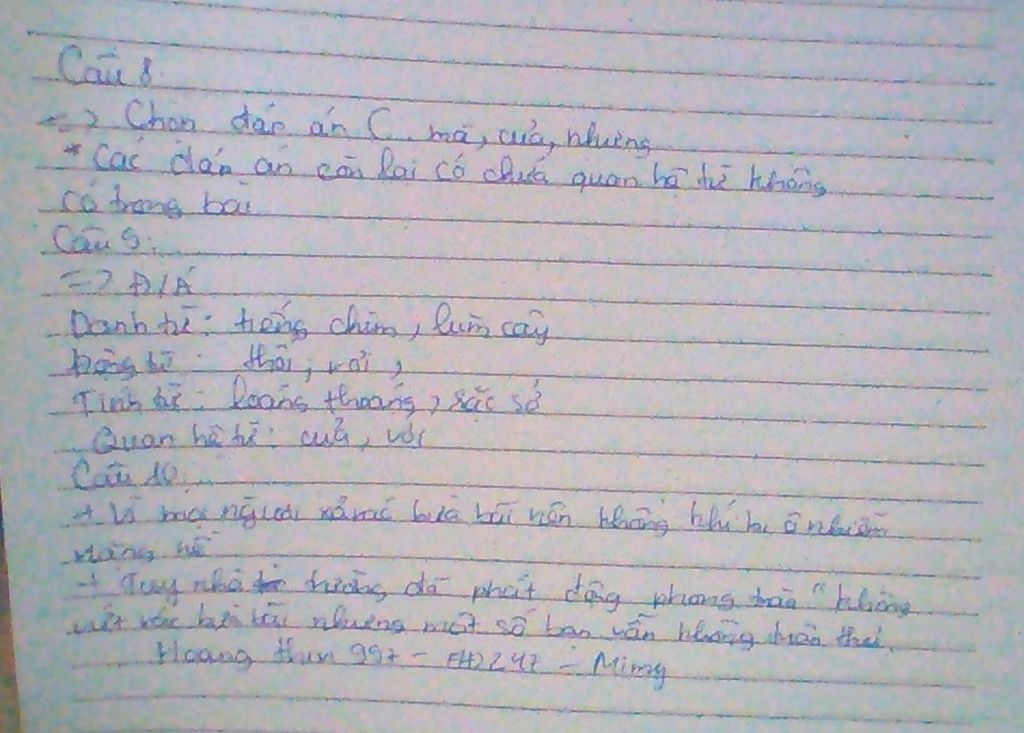 Câu 8.
=> Chọn đáp án C. mà, của, nhưng
* Các đáp án còn lại có chứa quan hệ từ không
có trong bài
Câu 9:
=> Đ/Á
Danh từ: tiếng chim, lùm cây
Động từ: thổi,
Tính từ: loáng thoáng, sặc sỡ
Quan hệ từ: của, với
Câu 10:
+ Vì mọi người xả rác bừa bãi nên không khí bị ô nhiễm
nặng nề
+ Tuy nhà trường đã phát động phong trào "không
vứt rác bừa bãi nhưng một số bạn vẫn không tuân theo.
Hoang thun 997 - - Mimy